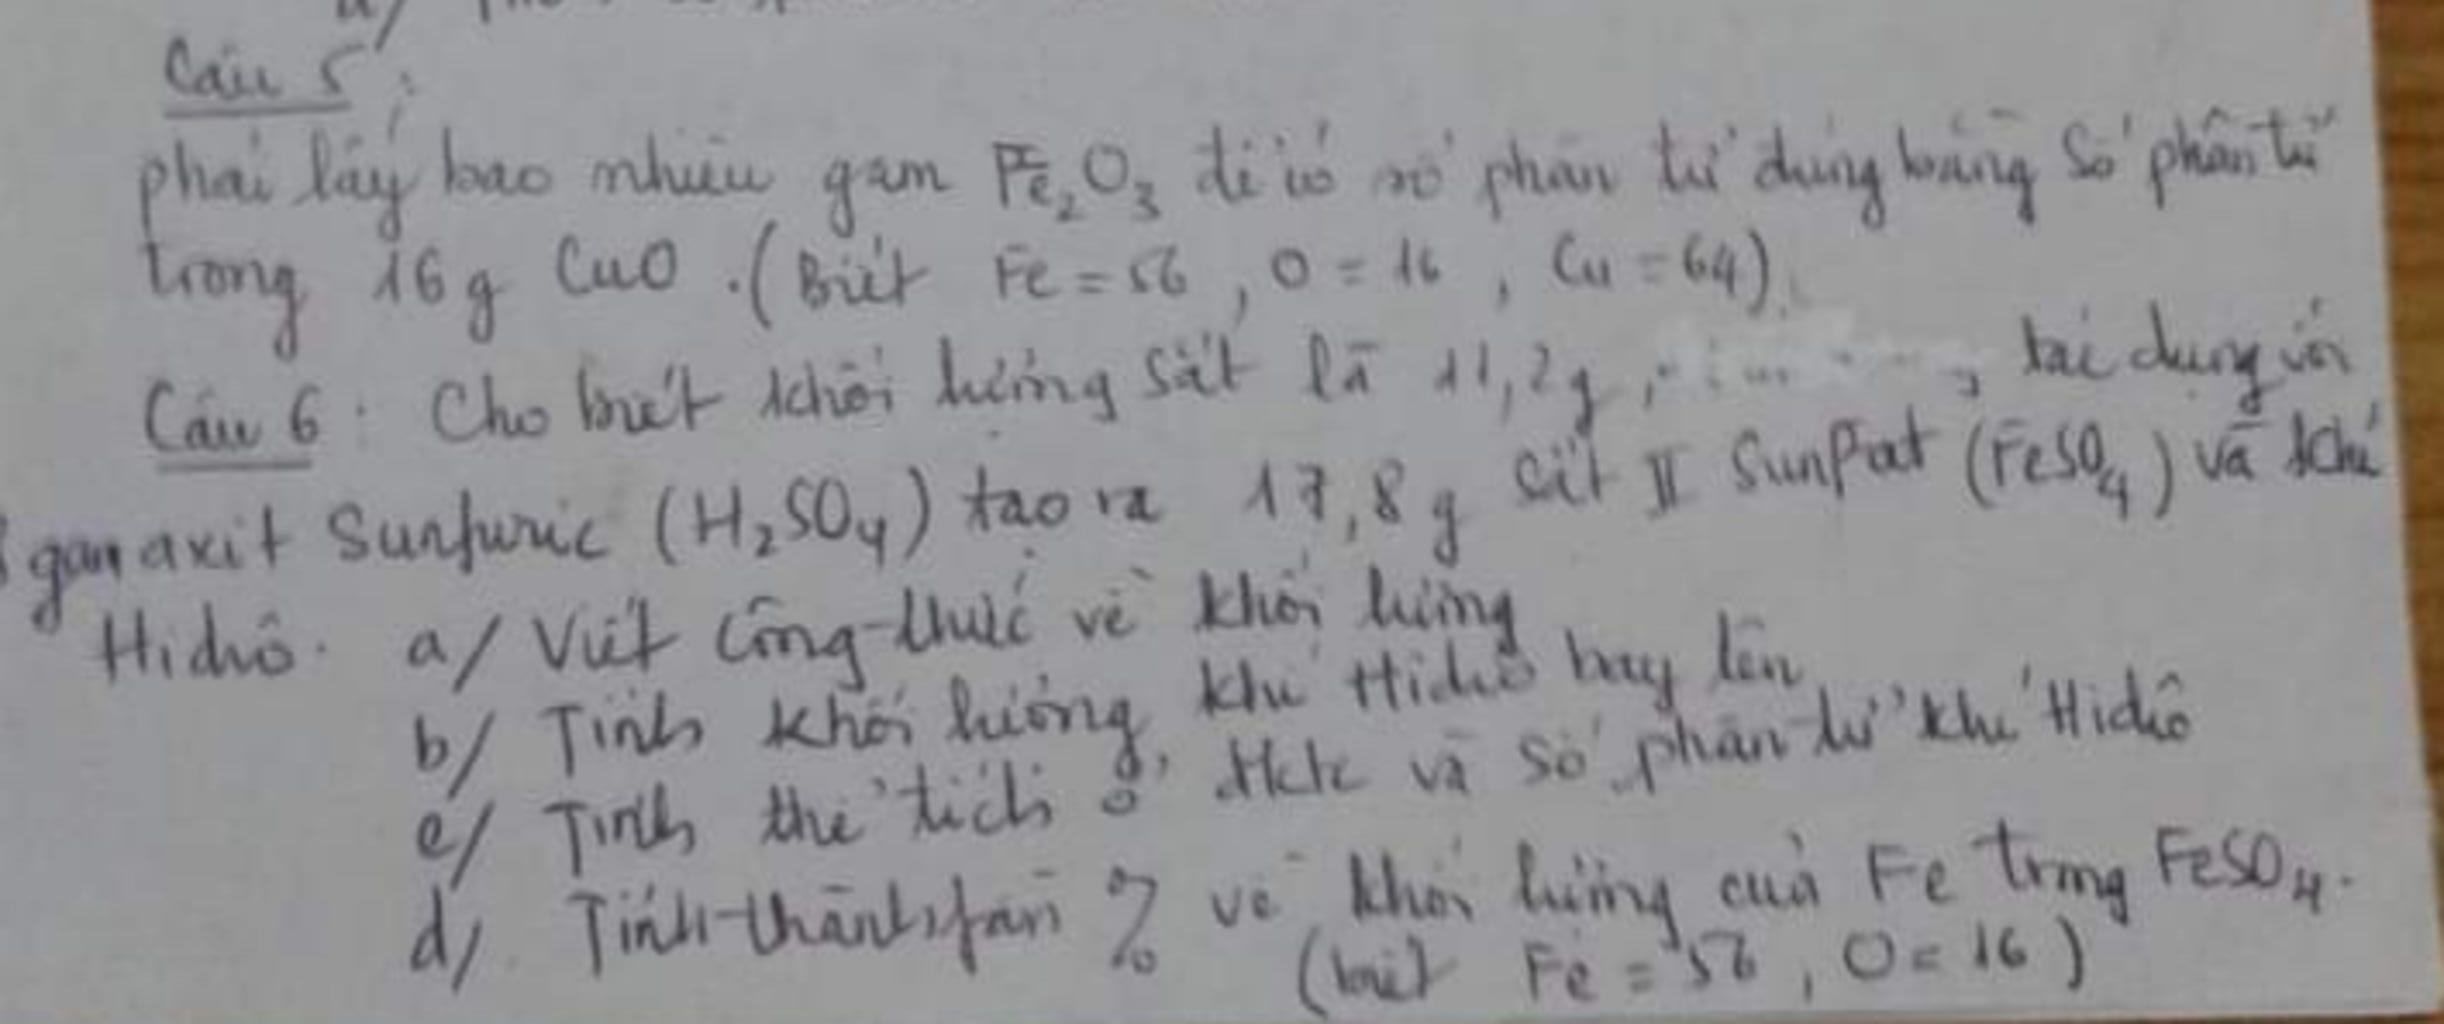 Câu 5:
phải lấy bao nhiêu gam Fe₂O₃ để có số phân tử đúng bằng số phân tử
trong 16g CuO. (Biết Fe = 56, O = 16, Cu = 64).
Câu 6: Cho biết khối lượng sắt là 11,2g, tác dụng với
gam axit Sunfuric (H₂SO₄) tạo ra 17,8g Sắt II Sunfat (FeSO₄) và khí
Hidrô. a/ Viết công thức về khối lượng
b/ Tính khối lượng khí Hidrô bay lên
c/ Tính thể tích ở đktc và số phân tử khí Hidrô
d/ Tính thành phần % về khối lượng của Fe trong FeSO₄.
(biết Fe = 56, O = 16)